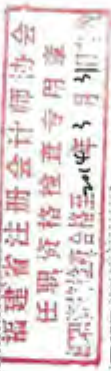 福建省注册会计师协会
任职资格检查专用章
2014年3月31日